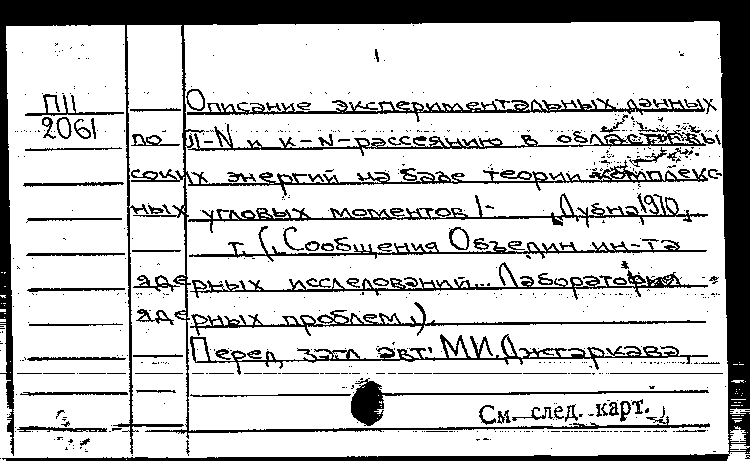 П11
2061
Описание экспериментальных данных
по П-N и к-N-рассеянию в области вы
соких энергий на базе теории комплекс-
ных угловых моментов 1- Дубна, 1970,
т. (, Сообщения Объедин ин-та
ядерных исследований... Лаборатория
ядерных проблем,).
Перед загл авт: М.И. Джгаркава,
См. след. карт.